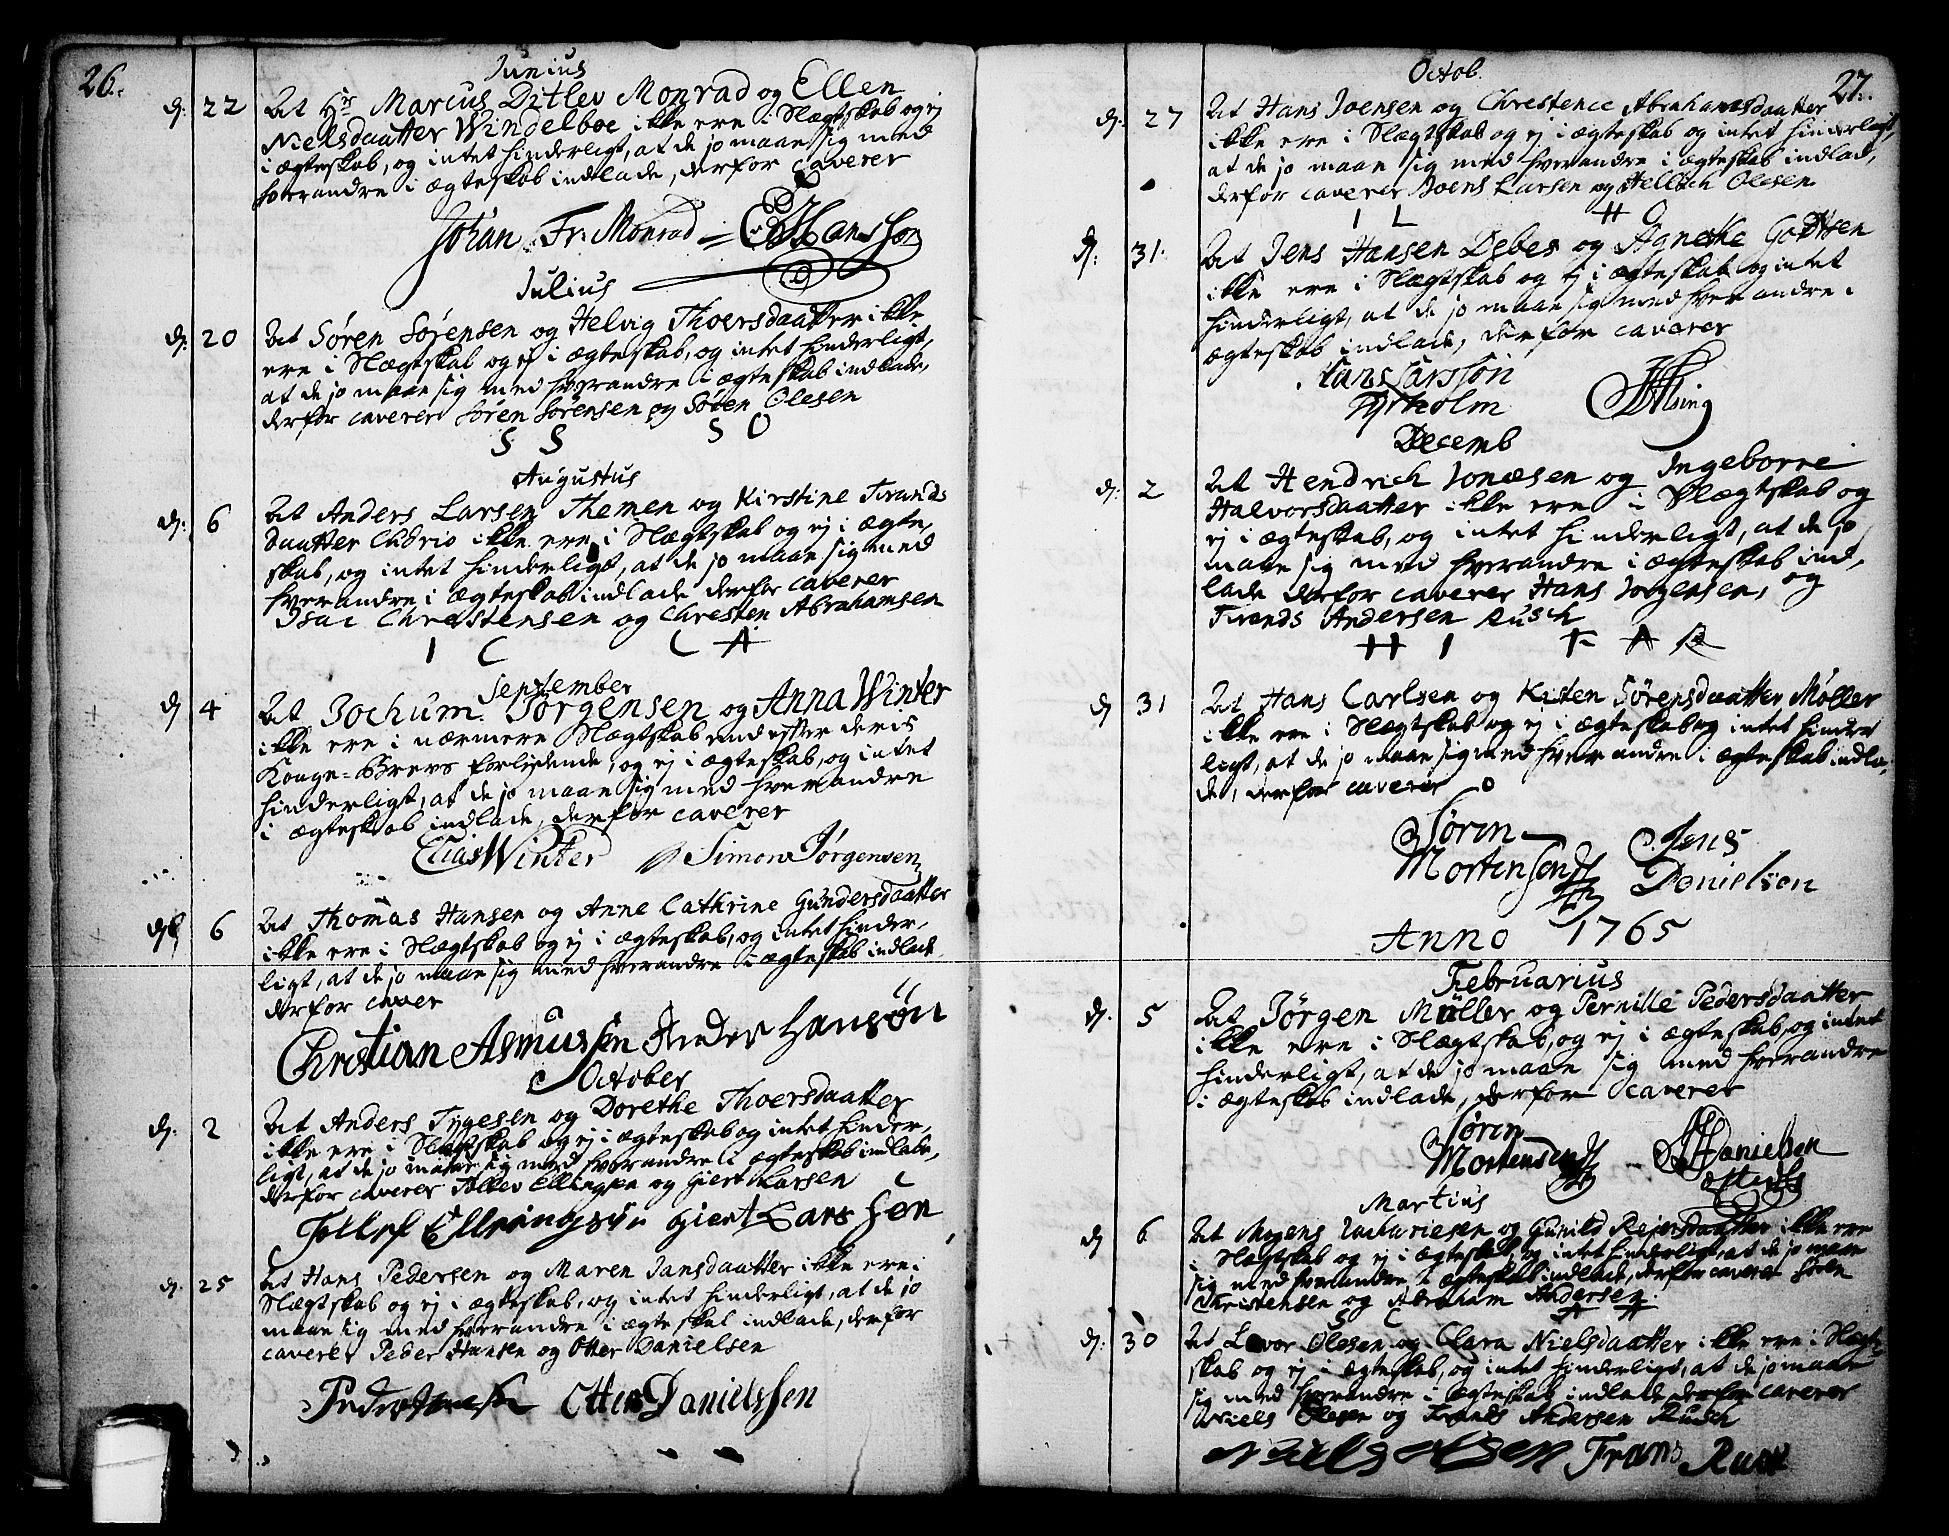 26.
Junius
d: 22 At Hr Marcus Ditlev Monrad og Ellen
Nielsdaatter Windelboe ikke ere i Slægtskab og ej
i ægteskab, og intet hinderligt, at de jo maae sig med
hverandre i ægteskab indlade, derfor caverer
Johan Fr: Monrad = Hansson
Julius
d: 20 At Søren Sørensen og Helvig Thoersdaatter ikke
ere i Slægtskab og ej i ægteskab, og intet hinderligt,
at de jo maae sig med hverandre i ægteskab indlade,
derfor caverer Søren Sørensen og Søren Olesen
S S S O
Augustus
d: 6 At Anders Larsen Themen og Kirstine Trands
daatter ikke ere i Slægtskab og ej i ægte,
skab, og intet hinderligt, at de jo maae sig med
hverandre i ægteskab indlade derfor caverer
Isac Christensen og Chresten Abrahamsen
I C C A
September
d 4 At Jochum Jörgensen og Anna Winter
ikke ere i nærmere Slægtskab end efter deris
Konge=Brevs forlydende, og ej i ægteskab, og intet
hinderligt, at de jo maae sig med hverandre
i ægteskab indlade, derfor caverer
Elias Winter Simon Jørgensen
d 6 At Thomas Hansen og Anne Cathrine Gundersdaatter
ikke ere i Slægtskab og ej i ægteskab, og intet hinder,
ligt, at de jo maae sig med hverandre i ægteskab indlade
derfor caver
Christian Asmussen Peder Hansøn
October
d: 2 At Anders Tygesen og Dorethe Thoersdaatter
ikke ere i Slægtskab og ej i ægteskab og intet hinder,
ligt, at de jo maae sig med hverandre i ægteskab indlade,
derfor caverer Tollev Ellingsen og Giert Larsen
Tollef Ellringsøn giert Lars Søn
d: 25 At Hans Pedersen og Maren Jansdaatter ikke ere i
Slægtskab og ej i ægteskab, og intet hinderligt, at de jo
maae sig med hverandre i ægteskab indlade, derfor
caverer Peder Hansen og Otter Danielsen
Peder Otter Danielssen
27.
Octob.
d: 27 At Hans Joensen og Chrestence Abrahamsdaatter
ikke ere i Slægtskab og ej i ægteskab og intet hinderligt,
at de jo maae sig med hverandre i ægteskab indlad,
derfor caverer Joens Larsen og Hellich Olesen
I L H O
d: 31. At Jens Hansen Debes og Agnethe Godtsen
ikke ere i Slægtskab og ej i ægteskab og intet
hinderligt, at de jo maae sig med hverandre i
ægteskab indlade, derfor caverer
Hans Larssön
Tyrholm
Decemb
d: 2 At Hendrich Jonæsen og Ingeborre
Halvorsdaatter ikke ere i Slægtskab og
ej i ægteskab, og intet hinderligt, at de jo
maae sig med hverandre i ægteskab ind,
lade derfor caverer Hans Jorgensen, og
Trands Andersen Rusch
H I T A R
d 31 At Hans Carlsen og Kisten Sørensdaatter Møller
ikke ere i Slægtskab og ej i ægteskab og intet hinder
ligt, at de jo maae sig med hverandre i ægteskab indla,
de, derfor caverer
Søren Jens
Mortensen Danielsen
Anno 1765
Februarius
d. 5 At Jörgen Müller og Pernille Pedersdaatter
ikke ere i Slægtskab, og ej i ægteskab, og intet
hinderligt, at de jo maae sig med hverandre
i ægteskab indlade, derfor caverer
Søren
Mortensen Danielsen
Martius
d 6 At Mogens Zachariesen og Gunild Rejersdaatter ikke ere
i Slægtskab og ej i ægteskab, og intet hinderligt, at de jo maae
sig med hverandre i ægteskab indlade, derfor caverer Søren
Christensen og Abraham Andersen.
S C A A
d: 30 At Levor Olesen og Clara Nielsdaatter ikke ere i Slægt,
skab og ej i ægteskab, og intet hinderligt, at de jo maae
sig med hverandre i ægteskab indlade derfor caverer
Niels Olesen og Trands Andersen Rusch
Niels Olsen Trans Rusk